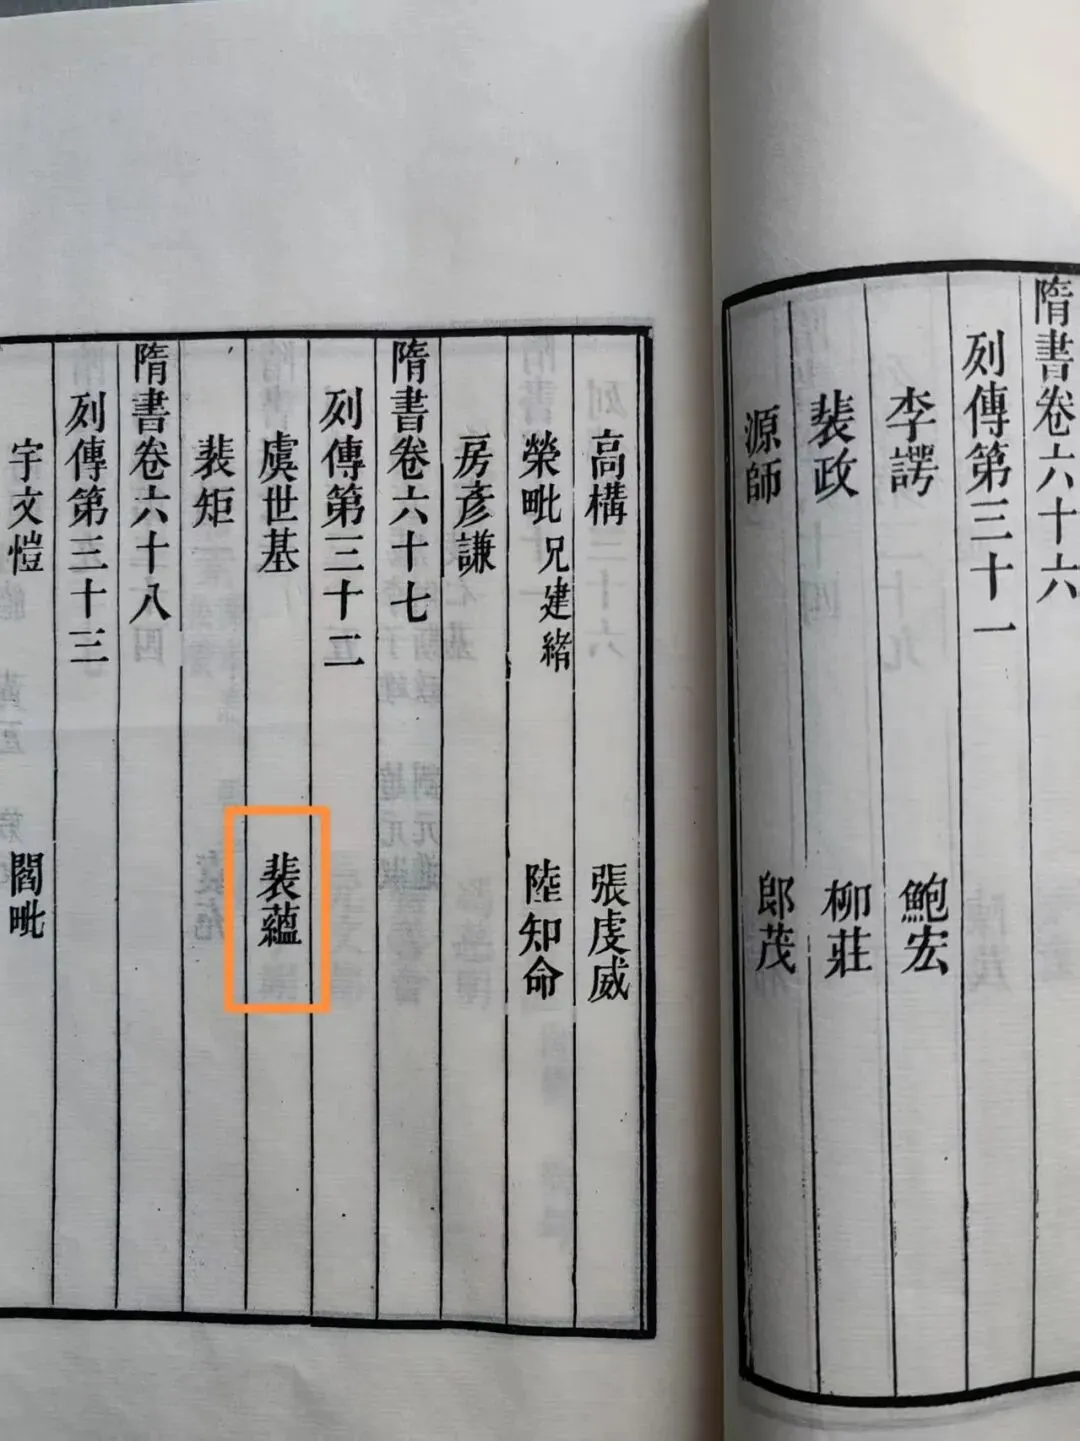 隋書卷六十六
列傳第三十一
李諤
鮑宏
裴政
柳莊
源師
郎茂
高構
張虔威
榮毗
兄建緒
陸知命
房彥謙
隋書卷六十七
列傳第三十二
虞世基
裴蘊
裴矩
隋書卷六十八
列傳第三十三
宇文愷
閻毗